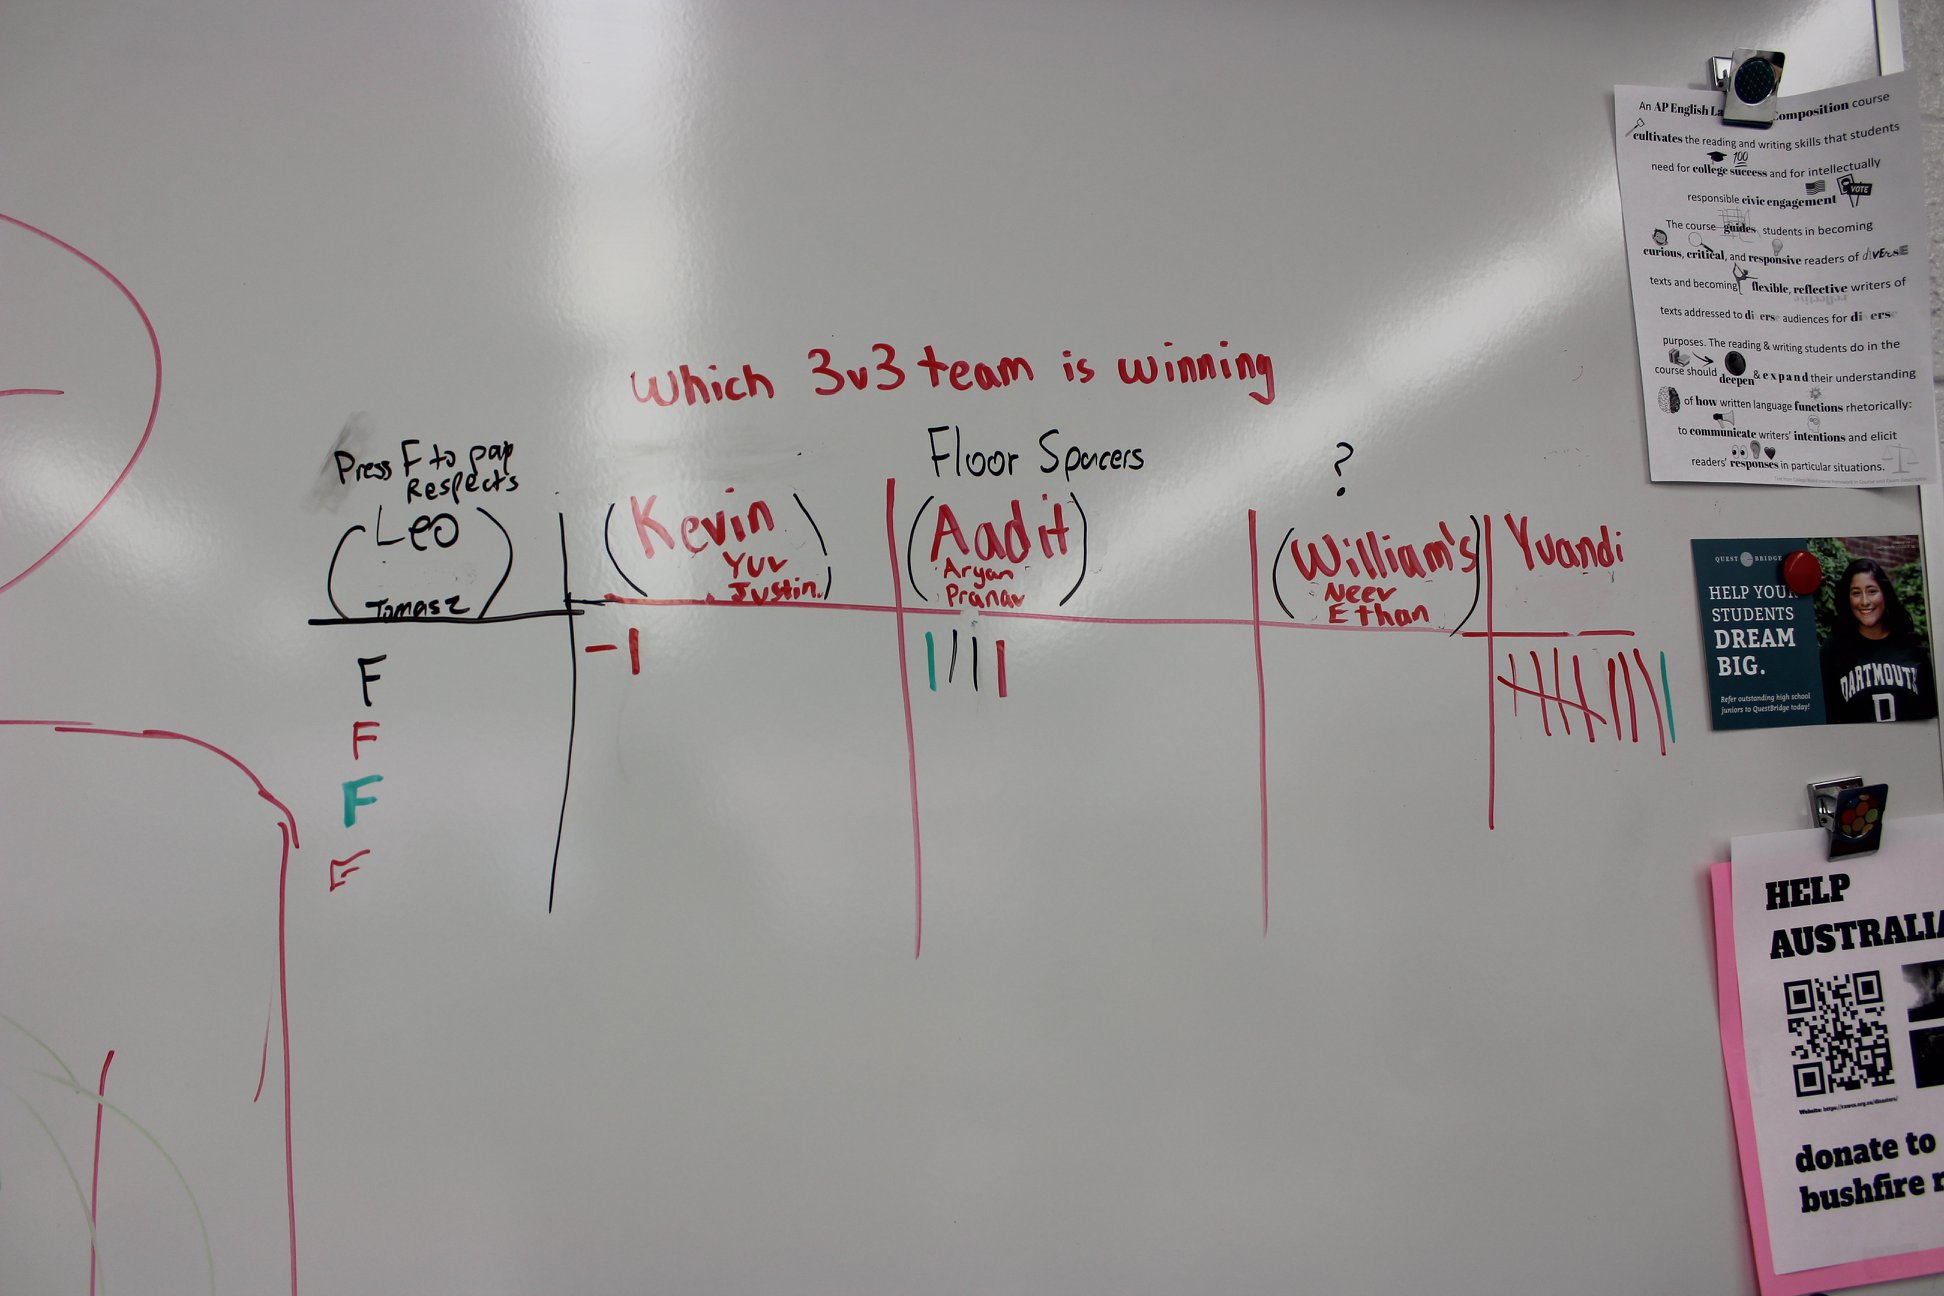 which 3v3 team is winning
Press F to pay
Respects
Floor Spacers
?
Leo
Tomasz
Kevin
Yuv
Justin
Aadit
Aryan
Pranav
William's
Neev
Ethan
Yuandi
F
F
F
F
-1
An AP English La omposition course
cultivates the reading and writing skills that students
100
need for college success and for intellectually
VOTE
responsible civic engagement
The course guides students in becoming
curious, critical, and responsive readers of divERSE
texts and becoming flexible, reflective writers of
reflective
texts addressed to diverse audiences for diverse
purposes. The reading & writing students do in the
course should deepen & expand their understanding
of how written language functions rhetorically:
to communicate writers' intentions and elicit
readers' responses in particular situations.
QUEST BRIDGE
HELP YOUR
STUDENTS
DREAM
BIG.
Refer outstanding high school
juniors to QuestBridge today!
DARTMOUTH
D
HELP
AUSTRALIA
donate to
bushfire r